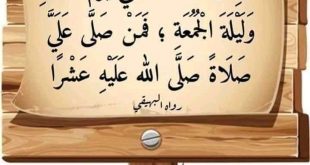 وَلَيْلَةَ الْجُمُعَةِ ؛ فَمَنْ صَلَّى عَلَيَّ
صَلَاةً صَلَّى الله عَلَيْهِ عَشْرًا
رواه البهيقي